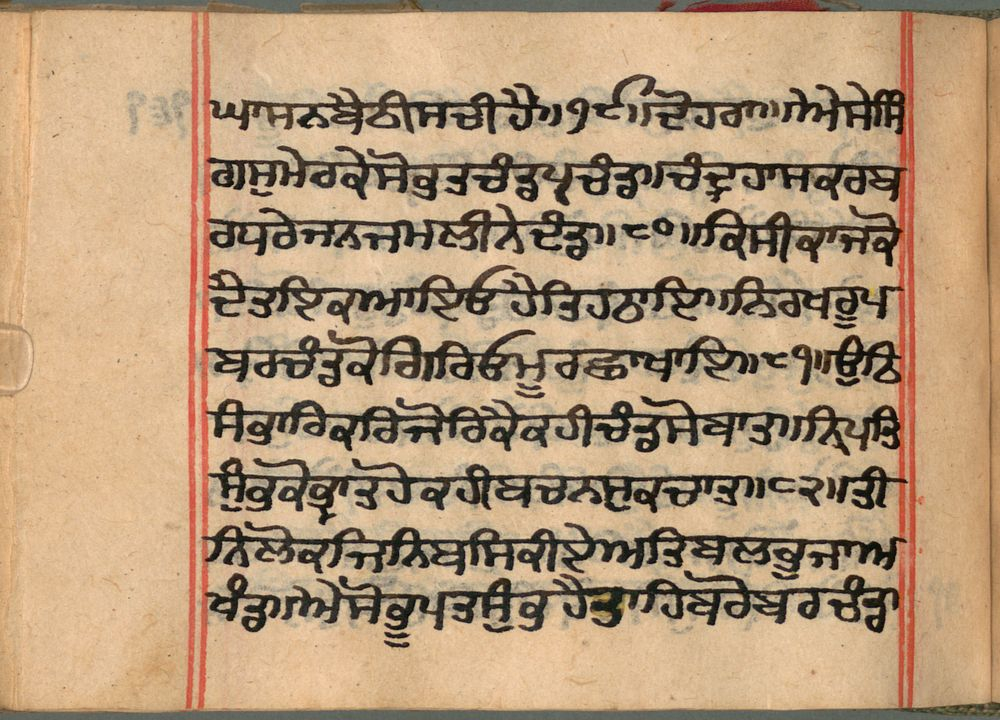 ਘਾਸਨ ਬੈਠੀ ਸਚੀ ਹੈ॥੭੯॥ਦੋਹਰਾ॥ਐਸੇ ਸਿੰ
ਗ ਸੁਮੇਰ ਕੇ ਸੋਭਤ ਚੰਡ ਪ੍ਰਚੰਡ॥ਚੰਦ੍ਰਹਾਸ ਕਰ ਬ
ਰ ਧਰੇ ਜਨ ਜਮ ਲੀਨੇ ਦੰਡ॥੮੦॥ਕਿਸੀ ਕਾਜ ਕੋ
ਦੈਤ ਇਕ ਆਇਓ ਹੈ ਤਿਹ ਠਾਇ॥ਨਿਰਖ ਰੂਪ
ਬਰ ਚੰਡ ਕੋ ਗਿਰਿਓ ਮੂਰਛਾ ਖਾਇ॥੮੧॥ਉਠਿ
ਸੰਭਾਰਿ ਕਰਿ ਜੋਰਿ ਕੈ ਕਹੀ ਚੰਡ ਸੋ ਬਾਤ॥ਨ੍ਰਿਪਤਿ
ਸੁੰਭ ਕੋ ਭ੍ਰਾਤ ਹੋ ਕਹੀ ਬਚਨ ਸੁਕਚਾਤ॥੮੨॥ਤੀ
ਨਿ ਲੋਕ ਜਿਨਿ ਬਸਿ ਕੀਏ ਅਤਿ ਬਲ ਭੁਜਾ ਅ
ਖੰਡ॥ਐਸੋ ਭੂਪਤ ਸੁੰਭ ਹੈ ਤਾਹਿ ਬਰੋ ਬਰ ਚੰਡ